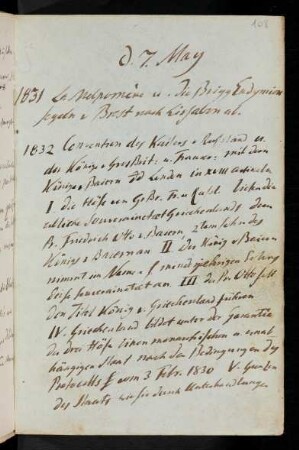 108
d. 7. May
1831 La Melpomène u. die Brigg Endymion
segeln v Brest nach Lissabon ab.
1832 Convention des Kaisers v Rußland u.
des Königs v GrosBrit: u. Frankr: mit dem
König v Baiern zu London in XXVII Artikeln
I die Höfe von GrBr. Fr. u Rußld.
erbliche Souverainetat Griechenlands dem
Pr. Friedrich Otto v Baiern 2tem Sohn des
Königs v Baiern an II der König v Baiern
nimmt im Namen s. minderjährigen Sohns
diese Souverainetat an III der Pr Otto soll
den Titel König v Griechenland führen
IV. Griechenland bildet unter der Garantie
der drei Höfe einen monarchischen u. unab
hängigen Staat nach den Bedingungen des
Protocolls v 3 Febr. 1830 V. Grenzen
des Staats wie sie durch Unterhandlungen